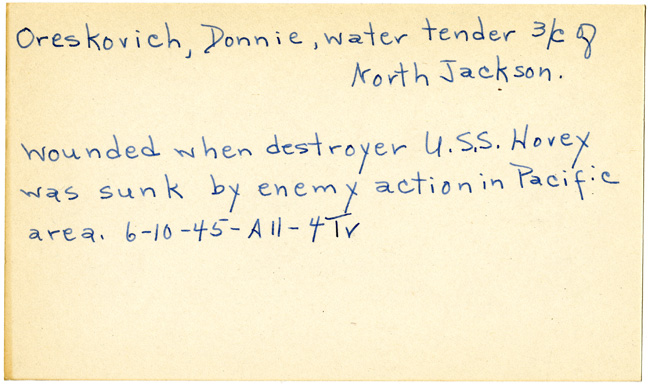 Oreskovich, Donnie, water tender 3/c of
North Jackson.
wounded when destroyer U.S.S. Hovey
was sunk by enemy action in Pacific
area. 6-10-45-A11-4Tr